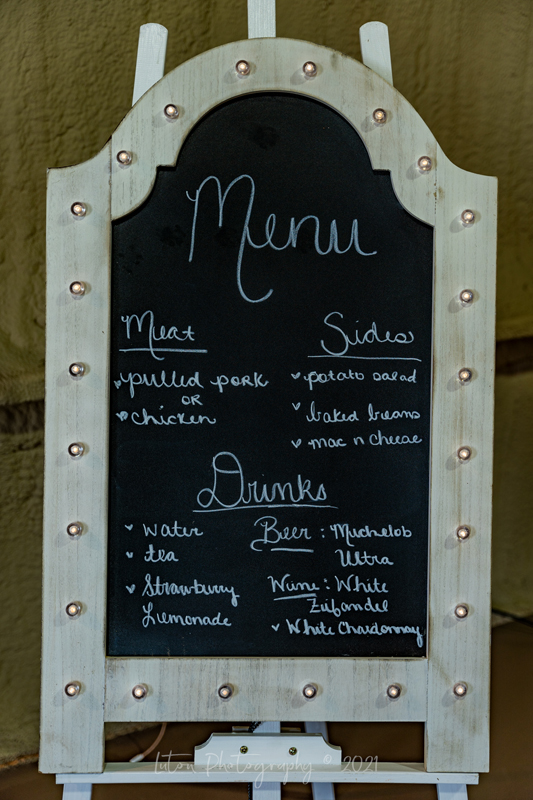 Menu
Meat
pulled pork
OR
chicken
Sides
potato salad
baked beans
mac n cheese
Drinks
water
tea
Strawberry
Lemonade
Beer : Michelob
Ultra
Wine : White
Zifandel
White Chardonnay
Luton Photography © 2021